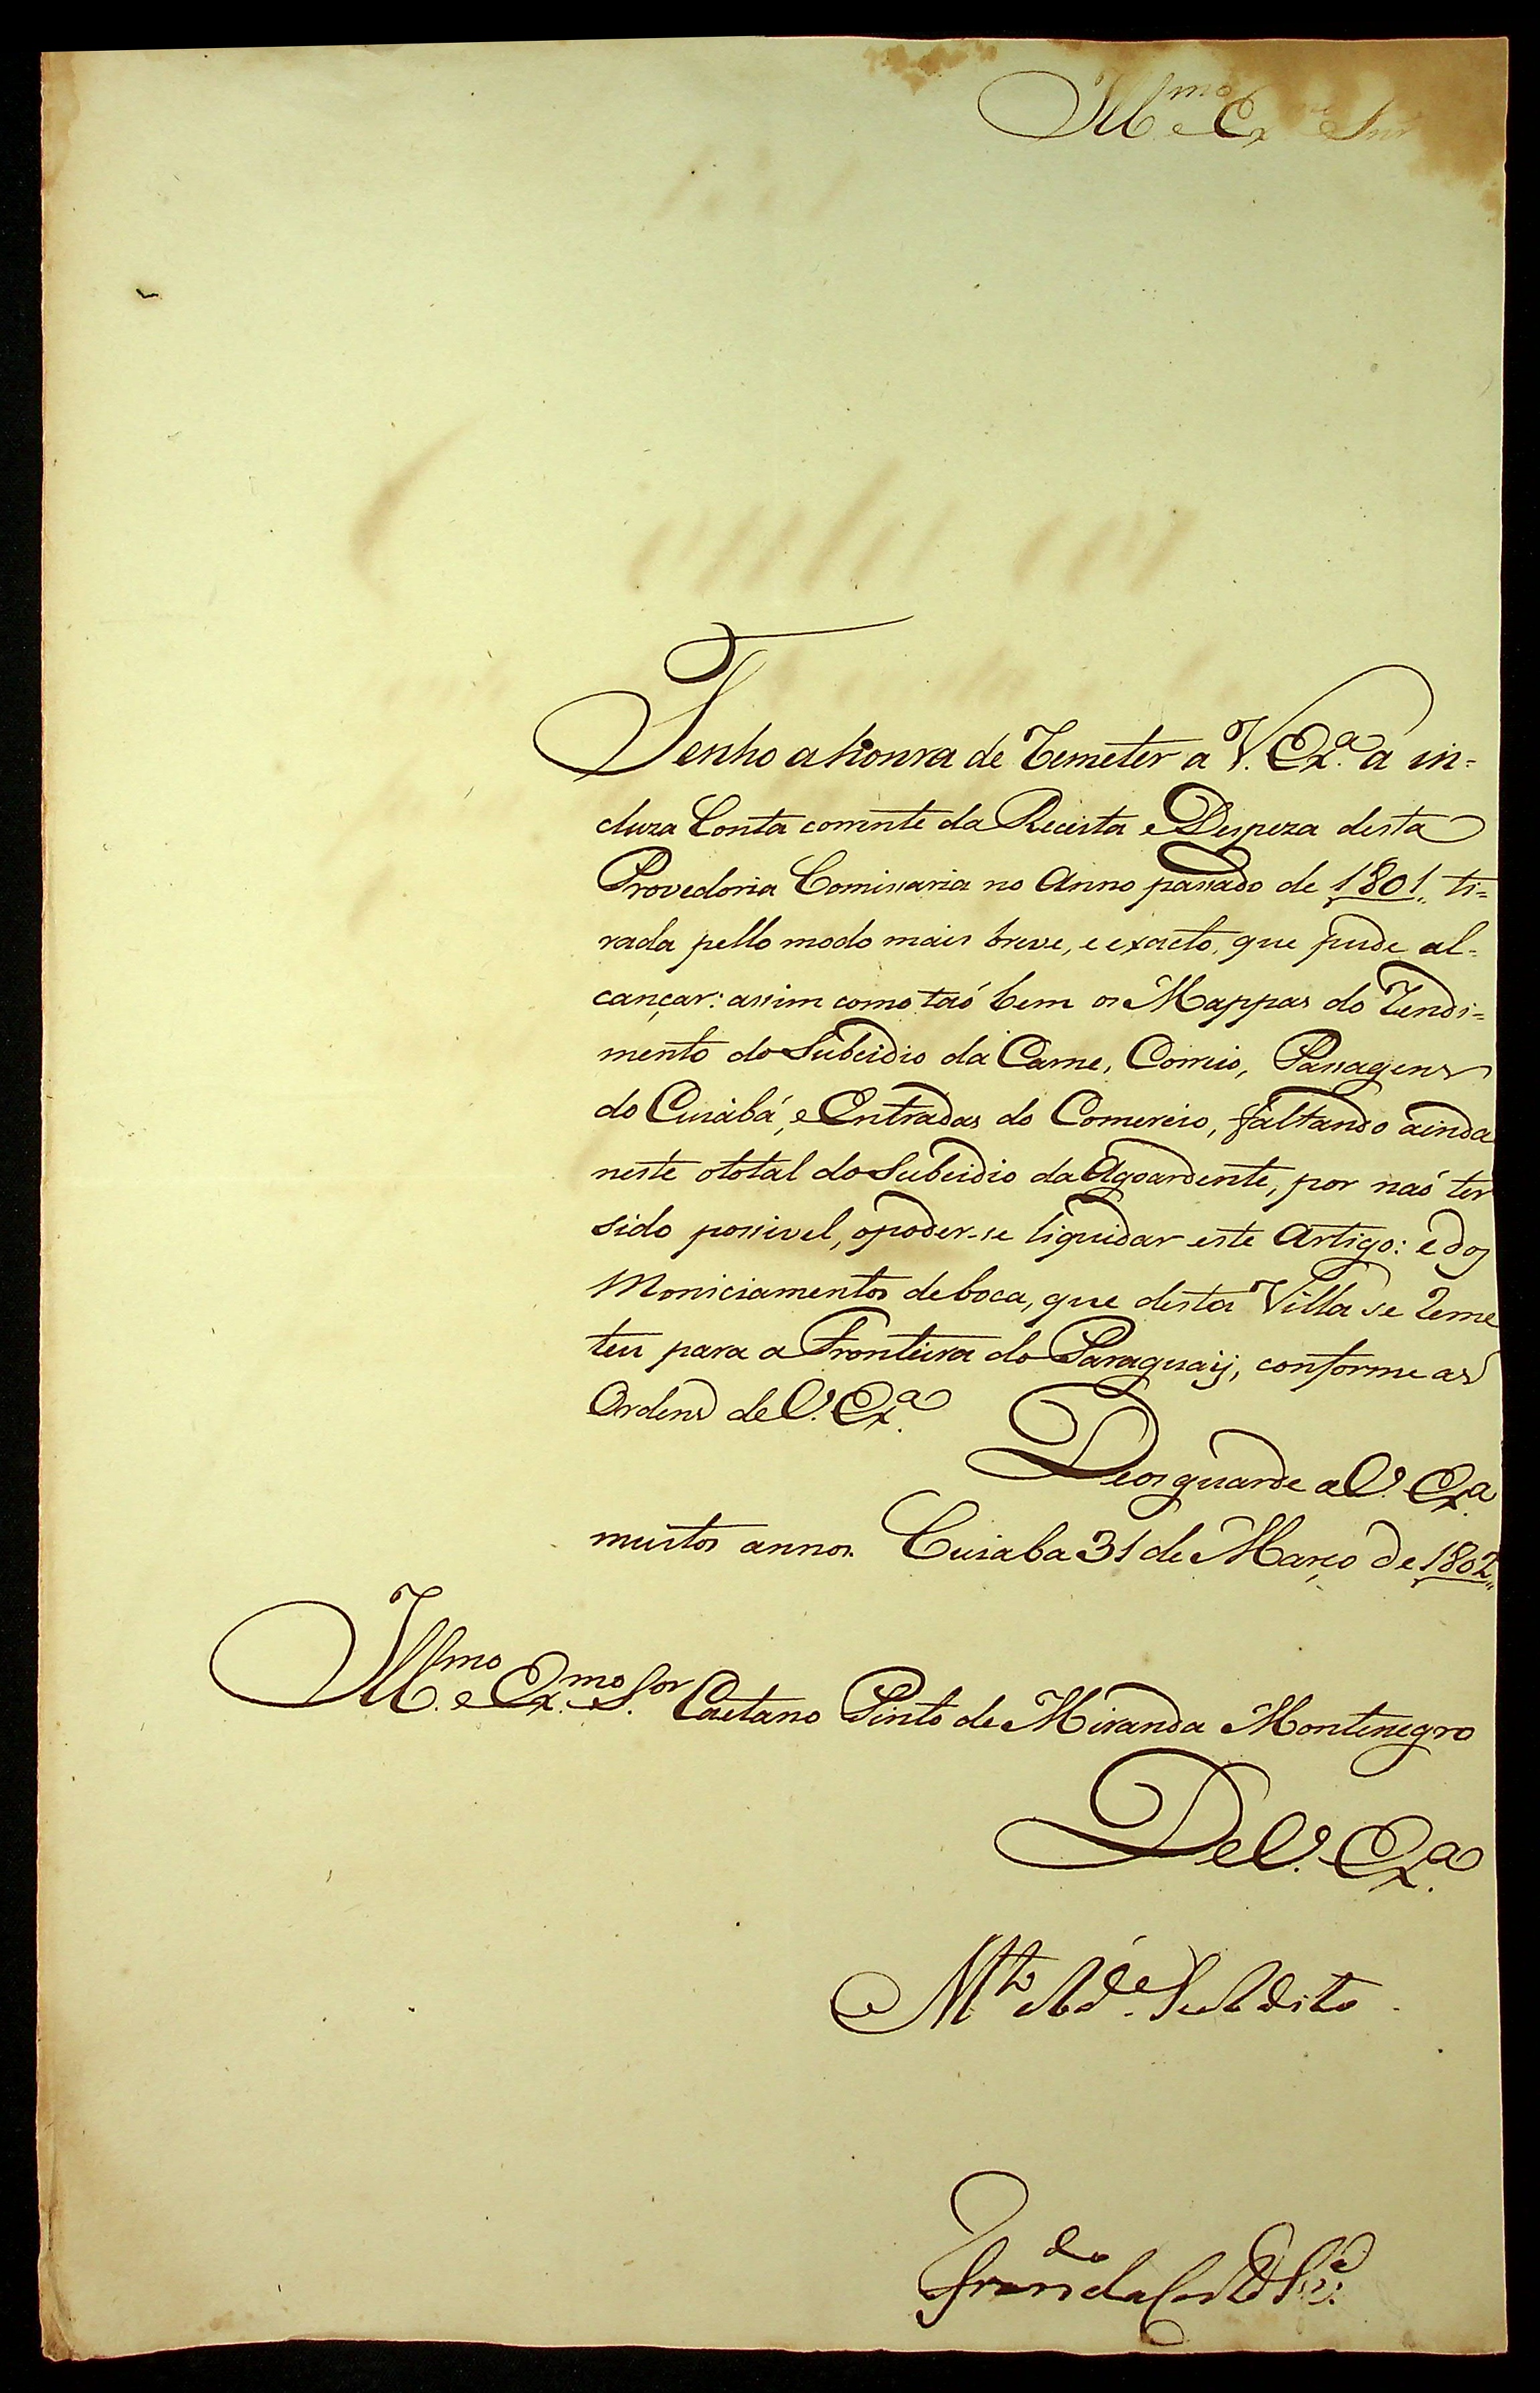 Ill.mo e Ex.mo Snr
Tenho a honra de Remeter a V. Ex.ª a in=
cluza Conta corrente da Receita e Despeza desta
Provedoria Comissaria no Anno passado de 1801,, ti=
rada pello modo mais breve, e exacto, que pude al=
cançar: assim como taõ bem os Mappas do Rendi=
mento do Subcidio da Carne, Correio, Passagens
do Cuiabá, e Entradas do Comercio, faltando ainda
neste o total do Subcidio da Agoardente, por naõ ter
sido possivel, o poder-se liquidar este Artigo: e dos
Moniciamentos de boca, que desta Villa se Reme
teu para a Fronteira do Paraguaÿ, conforme as
Ordens de V. Ex.ª
Deos guarde a V. Ex.ª
muitos annos. Cuiaba 31 de Março de 1802,,
Ill.mo e Ex.mo S.or Caetano Pinto de Miranda Montenegro
De V. Ex.ª
M.to Subdito